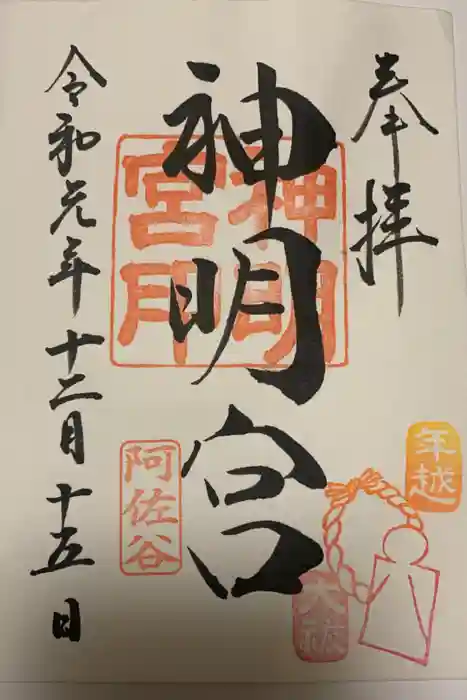 奉拝
年越
大祓
神明宮
神明宮印
阿佐谷
令和元年十二月十五日